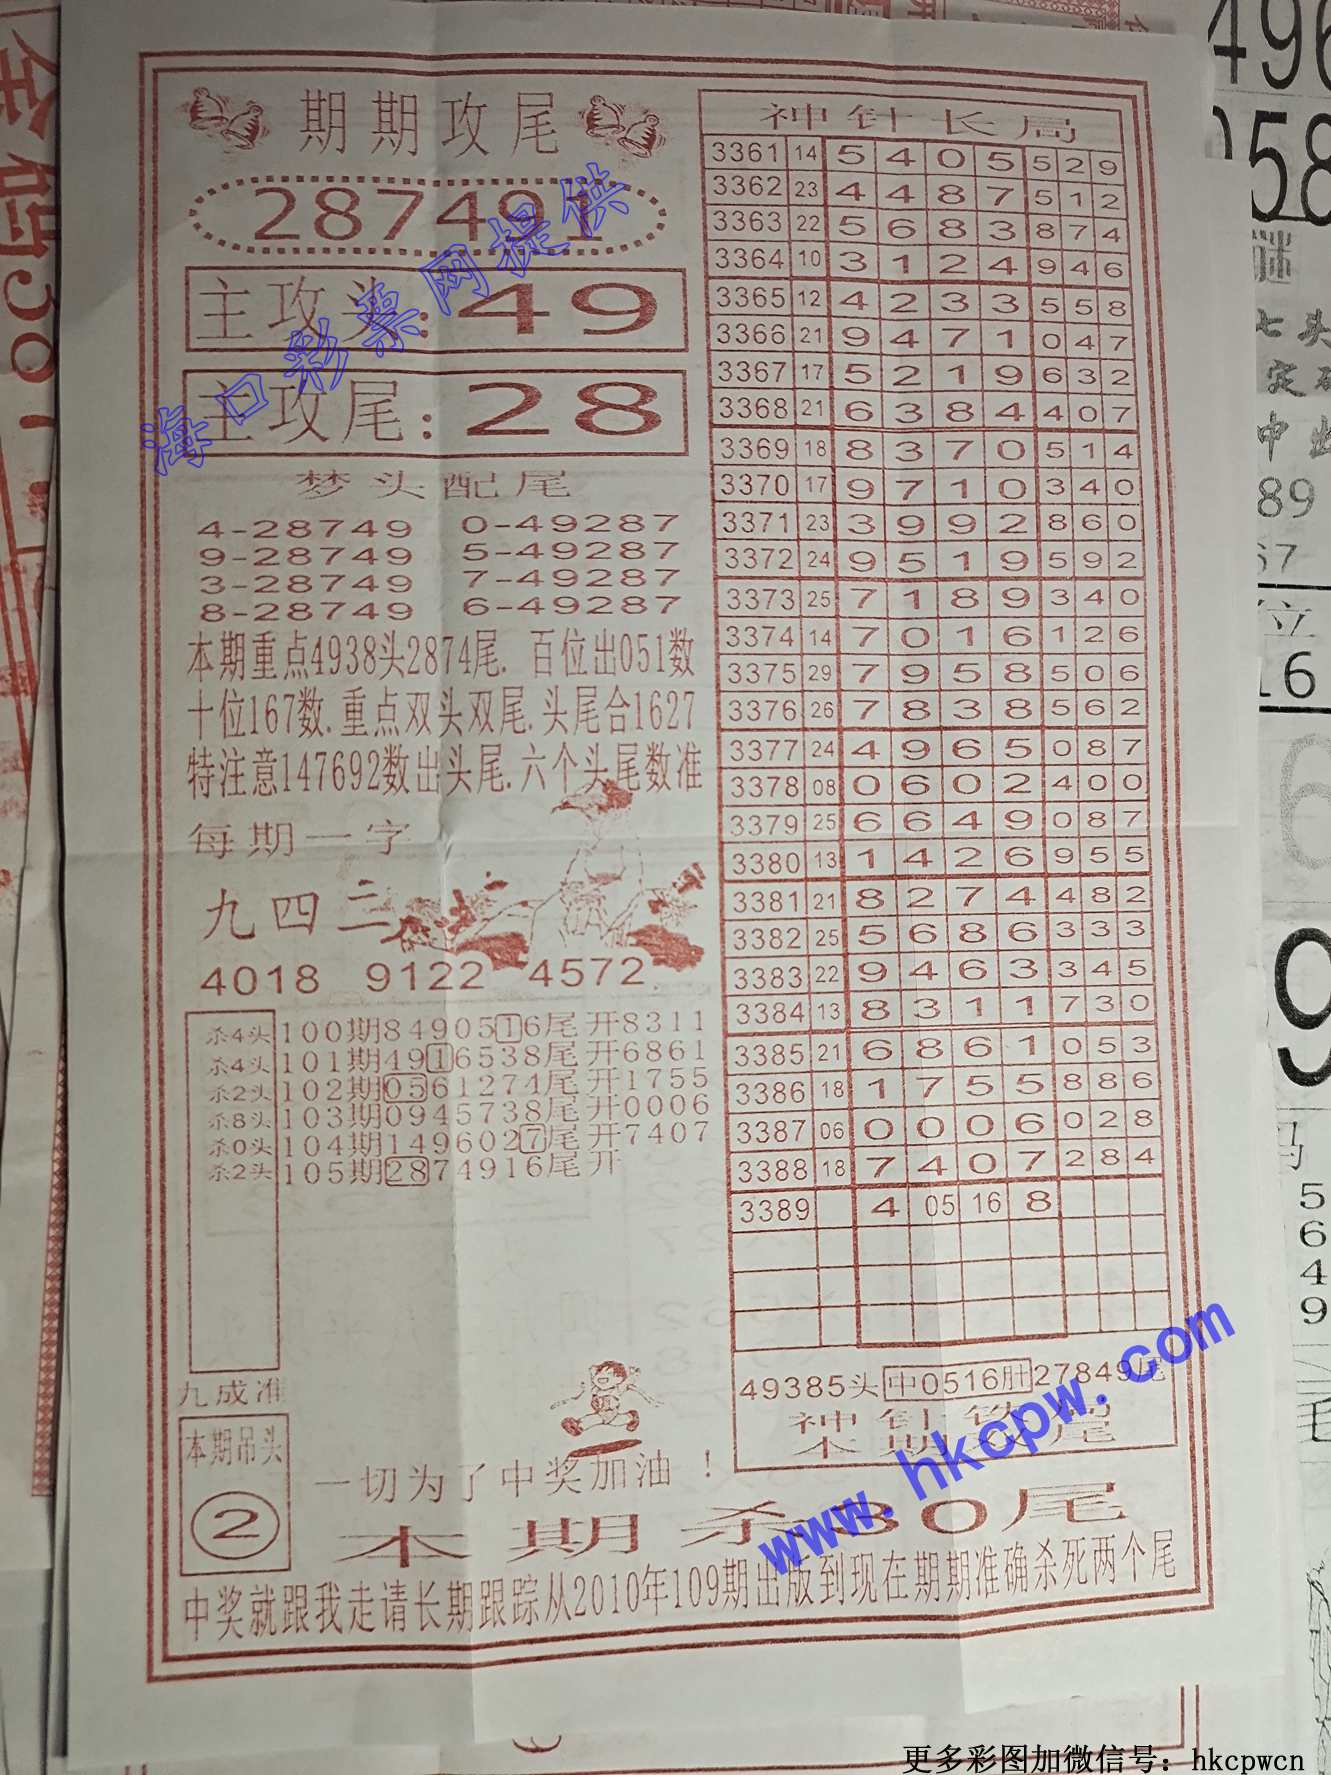 期期攻尾
287491
主攻头:49
主攻尾:28
梦头配尾
4-28749 0-49287
9-28749 5-49287
3-28749 7-49287
8-28749 6-49287
本期重点4938头2874尾. 百位出051数
十位167数.重点双头双尾.头尾合1627
特注意147692数出头尾.六个头尾数准
每期一字
九四二
4018 9122 4572
杀4头 100期8490516尾开8311
杀4头 101期4916538尾开6861
杀2头 102期0561274尾开1755
杀8头 103期0945738尾开0006
杀0头 104期1496027尾开7407
杀2头 105期2874916尾开
九成准
本期吊头
2
一切为了中奖加油！
神针长局
3361 14 5 4 0 5 5 2 9
3362 23 4 4 8 7 5 1 2
3363 22 5 6 8 3 8 7 4
3364 10 3 1 2 4 9 4 6
3365 12 4 2 3 3 5 5 8
3366 21 9 4 7 1 0 4 7
3367 17 5 2 1 9 6 3 2
3368 21 6 3 8 4 4 0 7
3369 18 8 3 7 0 5 1 4
3370 17 9 7 1 0 3 4 0
3371 23 3 9 9 2 8 6 0
3372 24 9 5 1 9 5 9 2
3373 25 7 1 8 9 3 4 0
3374 14 7 0 1 6 1 2 6
3375 29 7 9 5 8 5 0 6
3376 26 7 8 3 8 5 6 2
3377 24 4 9 6 5 0 8 7
3378 08 0 6 0 2 4 0 0
3379 25 6 6 4 9 0 8 7
3380 13 1 4 2 6 9 5 5
3381 21 8 2 7 4 4 8 2
3382 25 5 6 8 6 3 3 3
3383 22 9 4 6 3 3 4 5
3384 13 8 3 1 1 7 3 0
3385 21 6 8 6 1 0 5 3
3386 18 1 7 5 5 8 8 6
3387 06 0 0 0 6 0 2 8
3388 18 7 4 0 7 2 8 4
3389 4 05 16 8
49385头中0516肚27849尾
本期杀30尾
中奖就跟我走请长期跟踪从2010年109期出版到现在期期准确杀死两个尾
海口彩票网提供
www.hkcpw.com
更多彩图加微信号：hkcpwcn
496
058
谜
七头
定
中
89
67
位
16
6
9
5
6
4
9